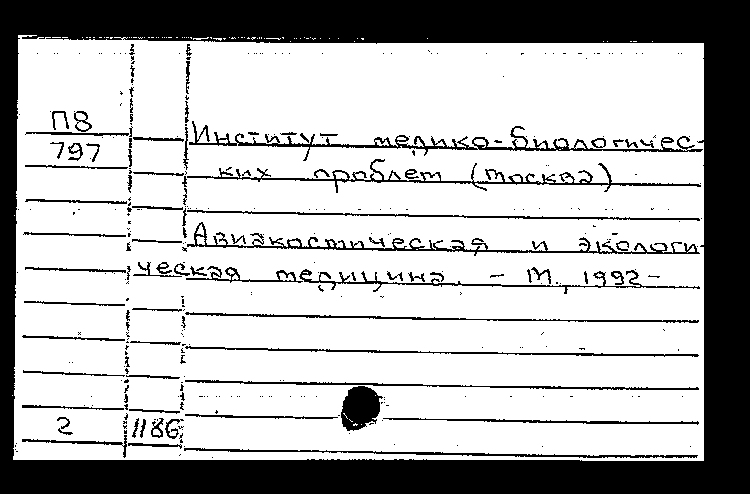 П8
797
Институт медико-биологичес-
ких проблем (Москва)
Авиакосмическая и экологи-
ческая медицина. - М., 1992-
2 1186